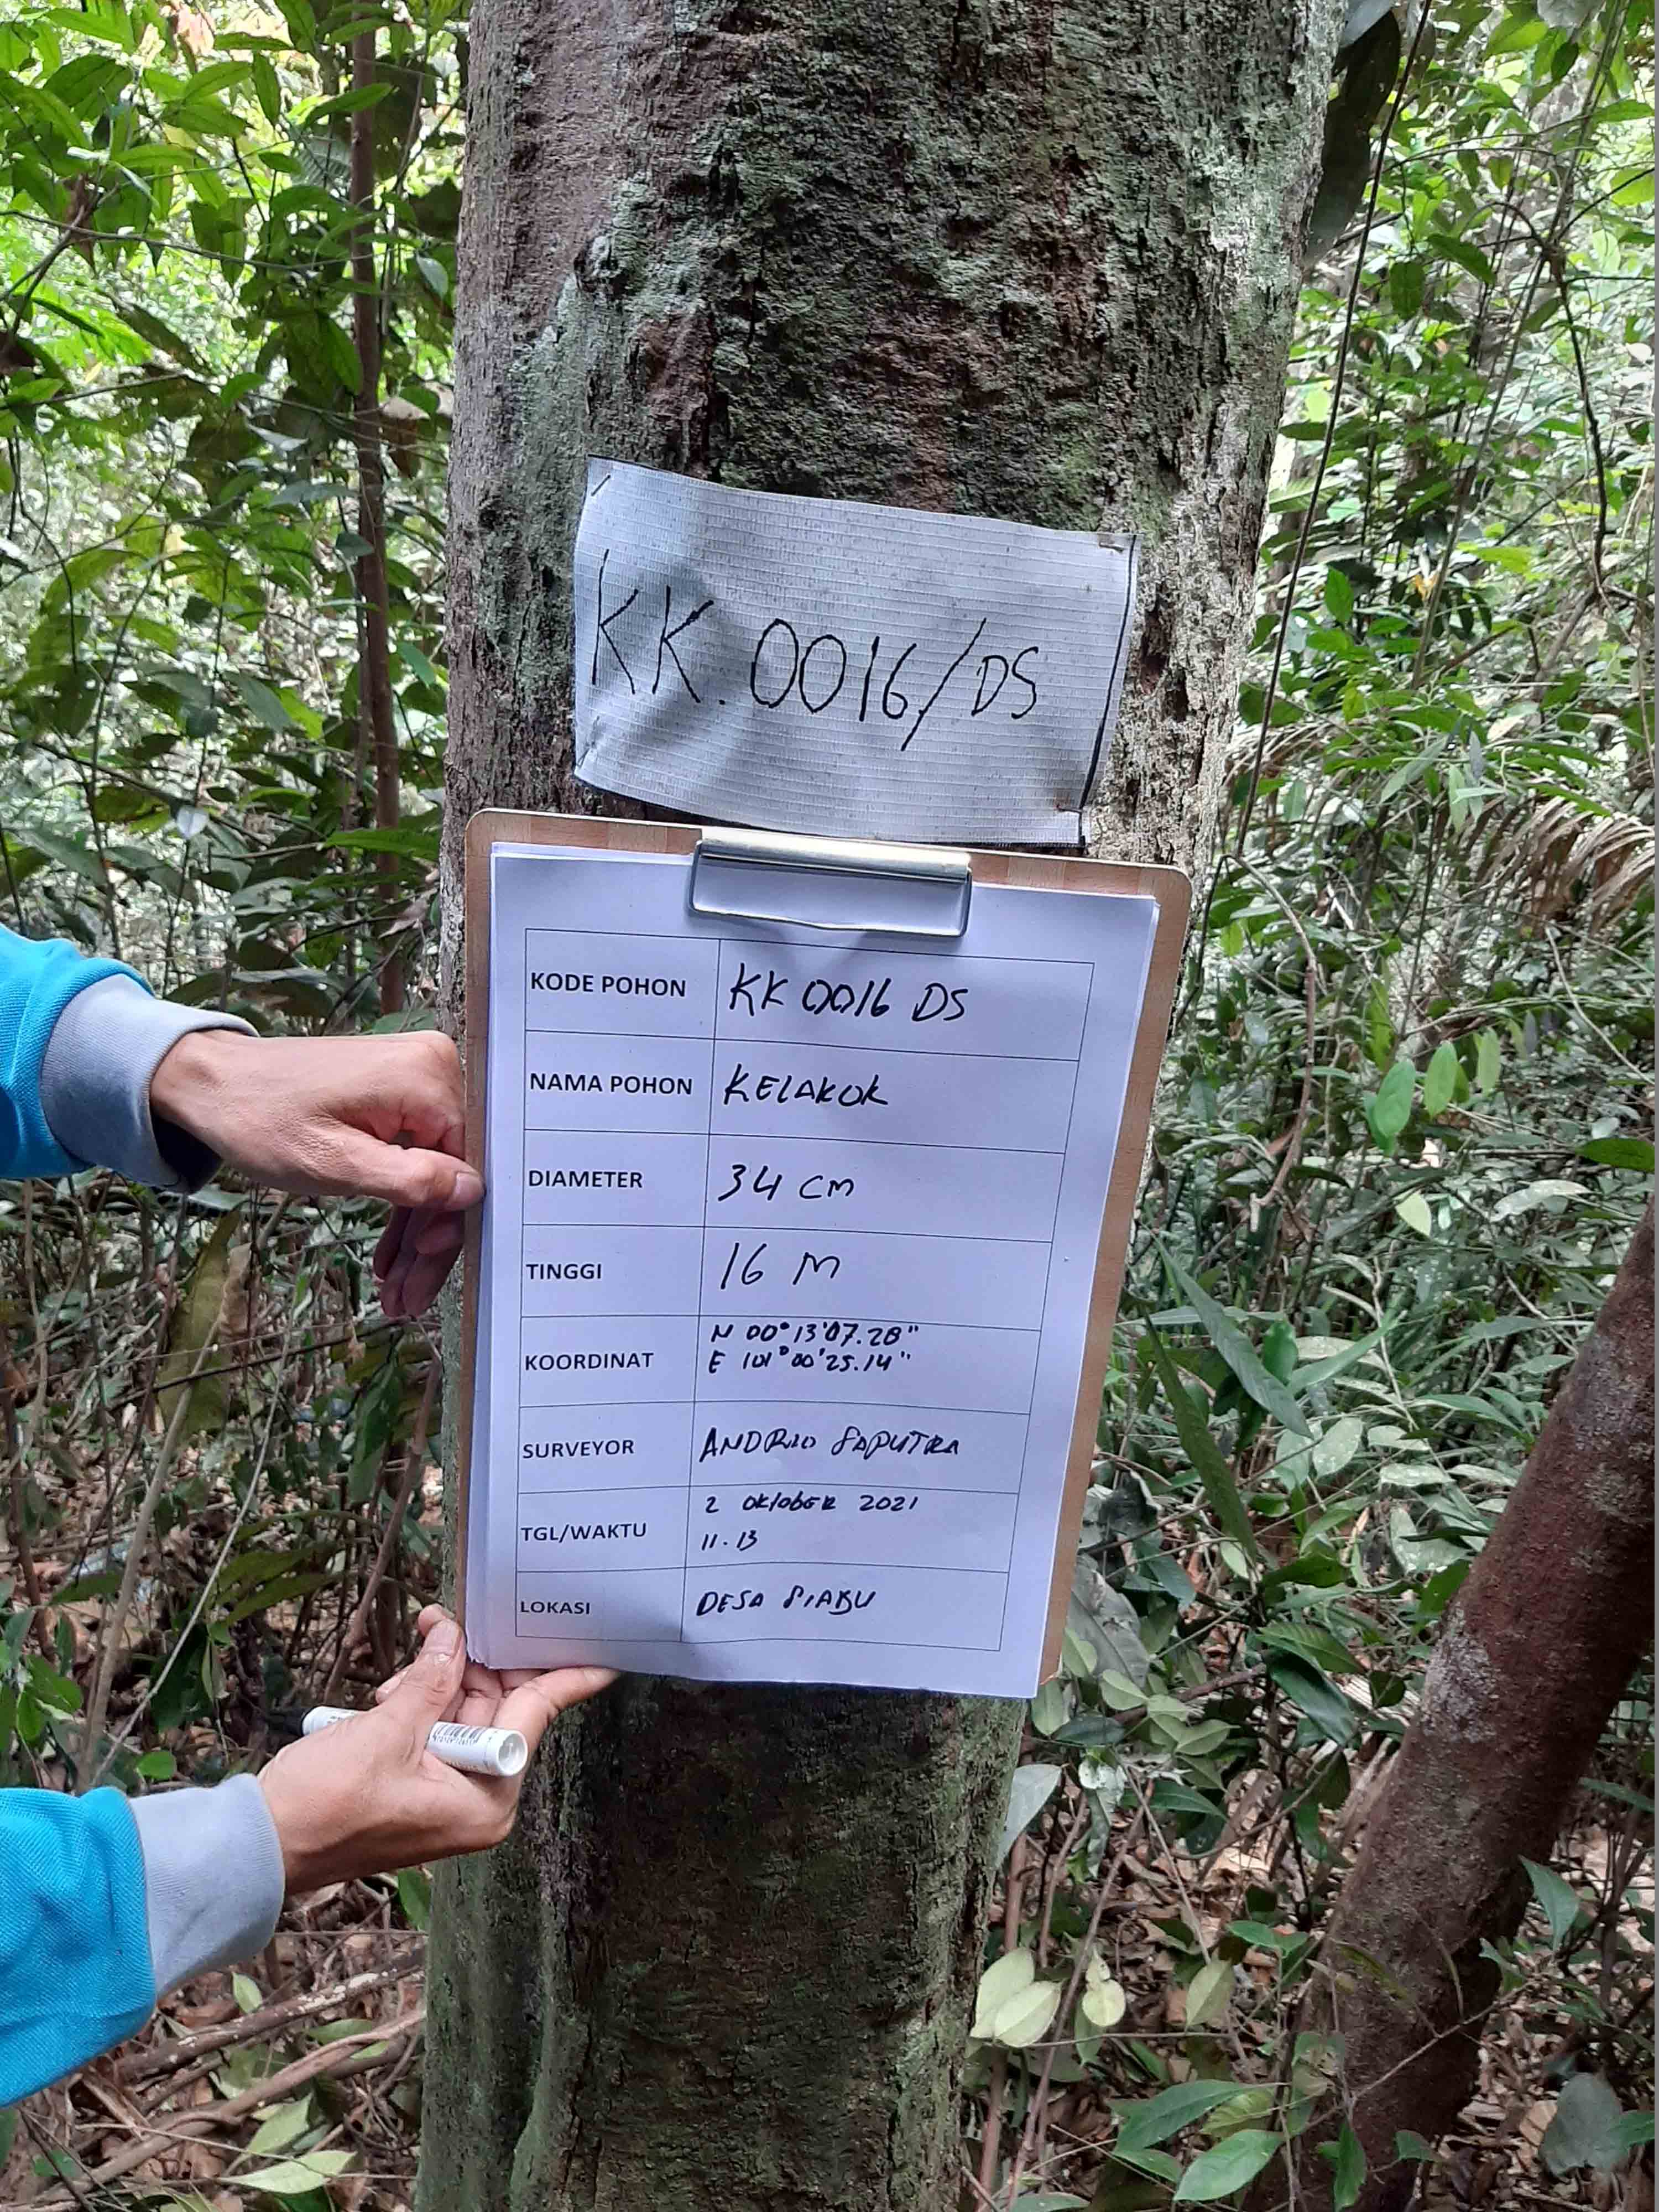 KK.0016/DS
KODE POHON KK 0016 DS
NAMA POHON KELAKOK
DIAMETER 34 CM
TINGGI 16 M
KOORDINAT N 00°13'07.28"
E 101°00'25.14"
SURVEYOR ANDRIO SAPUTRA
TGL/WAKTU 2 OKTOBER 2021
11.13
LOKASI DESA SIABU